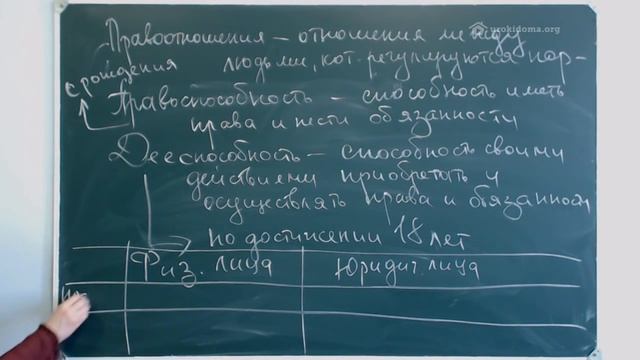 urokidoma.org
Правоотношения – отношения между
людьми, кот. регулируются нор-
с рождения
Правоспособность – способность иметь
права и нести обязанности
Дееспособность – способность своими
действиями приобретать и
осуществлять права и обязанности
по достижении 18 лет
Физ. лица
Юридич. лица